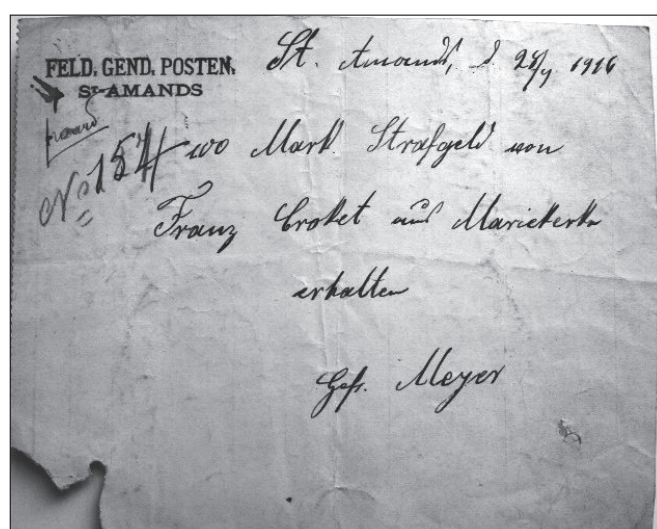 FELD. GEND. POSTEN.
St-AMANDS
St. Amands, d. 24/9 1916
No 154
100 Mark Strafgeld von
Franz Croket aus Mariekerke
erhalten
Gefr. Meyer